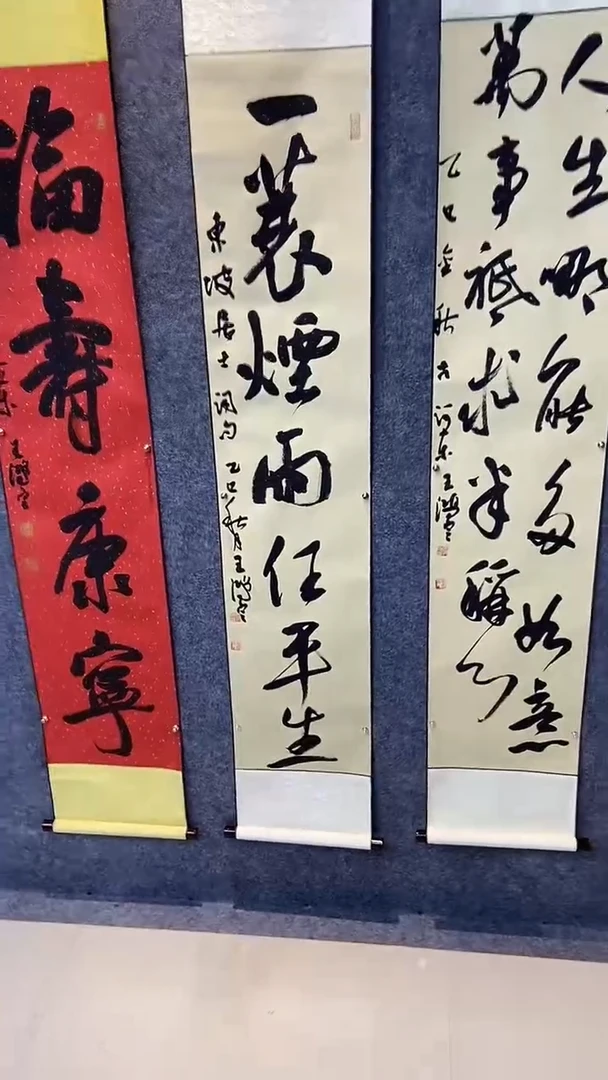 人生哪能多如意
萬事祗求半稱心
乙巳金秋
王鴻雲
一蓑煙雨任平生
東坡居士词句乙巳秋月王鴻雲
福壽康寧
王鴻雲